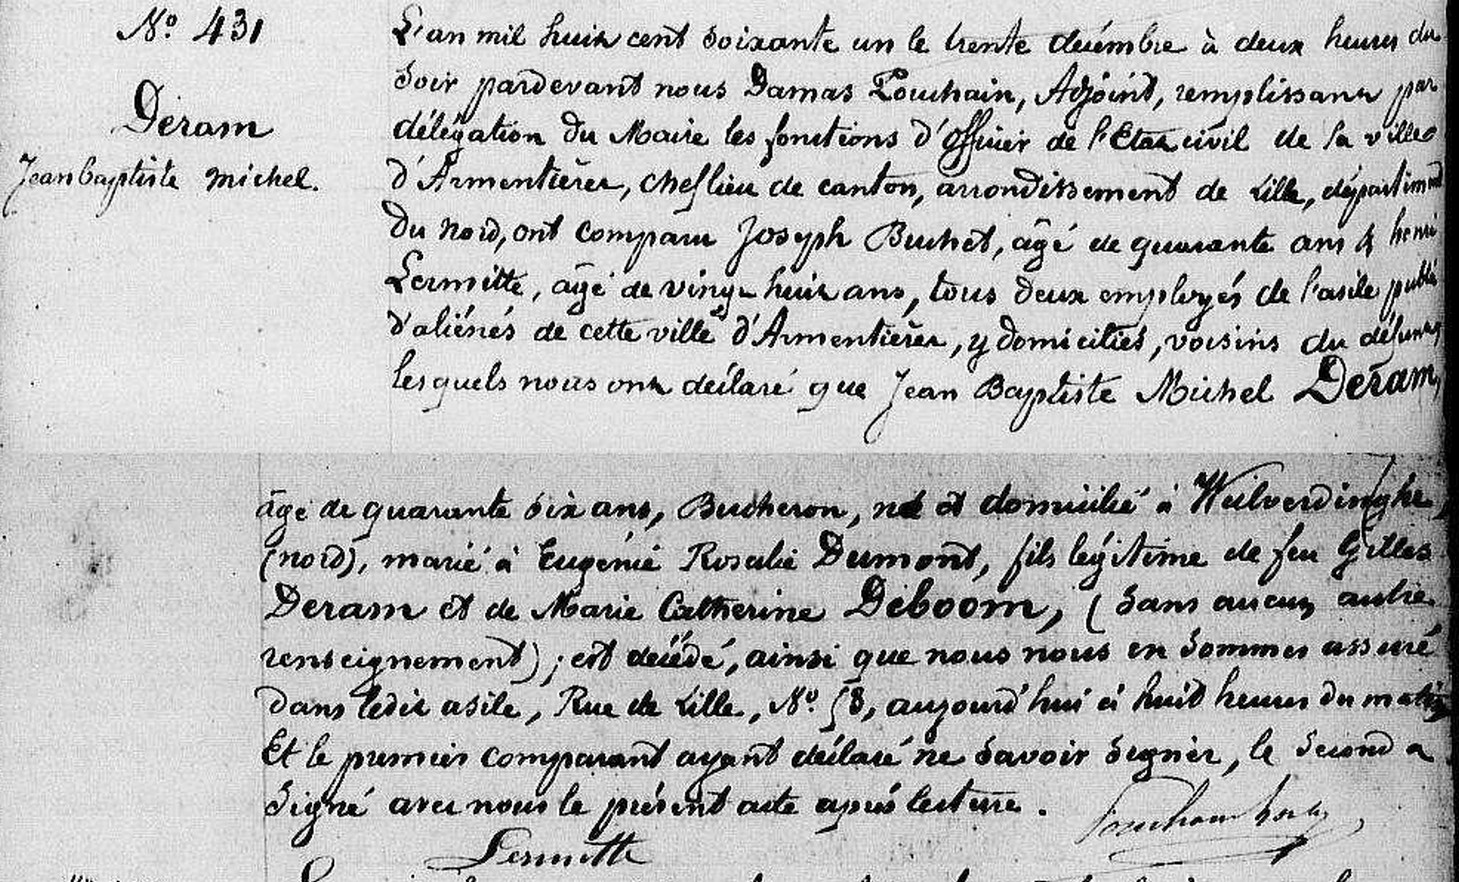 N.o 431
Deram
Jean baptiste michel.
L'an mil huit cent soixante un le trente décembre à deux heures du
soir pardevant nous Damas Pouchain, Adjoint, remplissant par
délégation du Maire les fonctions d'officier de l'Etat civil de la ville
d'Armentières, chef lieu de canton, arrondissement de Lille, département
du nord, ont comparu Joseph Buchet, âgé de quarante ans & henri
Lermitte, âgé de vingt huit ans, tous deux employés de l'asile public
d'aliénés de cette ville d'Armentières, y domiciliés, voisins du défunt,
lesquels nous ont déclaré que Jean Baptiste Michel Deram,
âgé de quarante six ans, Bucheron, né et domicilié à Wulverdinghe,
(nord), marié à Eugénie Rosalie Dumont, fils légitime de feu Gilles
Deram et de Marie Catherine Deboom, (sans aucun autre
renseignement); est décédé, ainsi que nous nous en sommes assuré
dans ledit asile, Rue de Lille, N.o 58, aujourd'hui à huit heures du matin
Et le premier comparant ayant déclaré ne savoir signer, le second a
signé avec nous le présent acte après lecture.
Lermitte